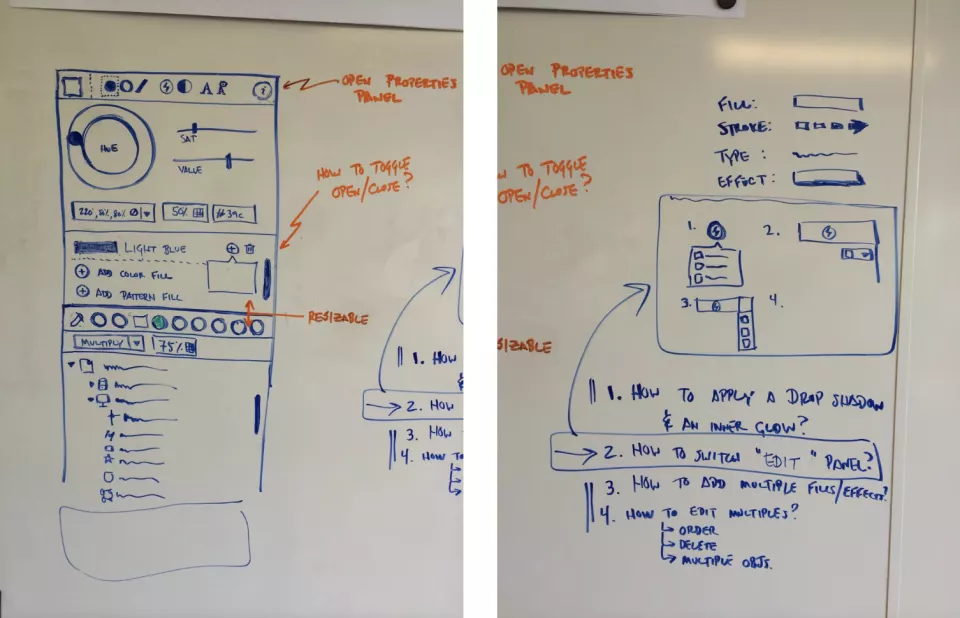 A
OPEN PROPERTIES
PANEL
HUE
SAT
VALUE
HOW TO TOGGLE
OPEN/CLOSE?
50%
LIGHT BLUE
ADD COLOR FILL
ADD PATTERN FILL
RESIZABLE
MULTIPLY
75%
1. HOW
&
2. HOW
3. HOW
4. HOW TO
OPEN PROPERTIES
PANEL
W TO TOGGLE
OPEN/CLOSE?
SIZABLE
FILL:
STROKE:
TYPE:
EFFECT:
1.
2.
3.
4.
1. HOW TO APPLY A DROP SHADOW
& AN INNER GLOW?
2. HOW TO SWITCH "EDIT" PANEL?
3. HOW TO ADD MULTIPLE FILLS/EFFECTS?
4. HOW TO EDIT MULTIPLES?
ORDER
DELETE
MULTIPLE OBJS.